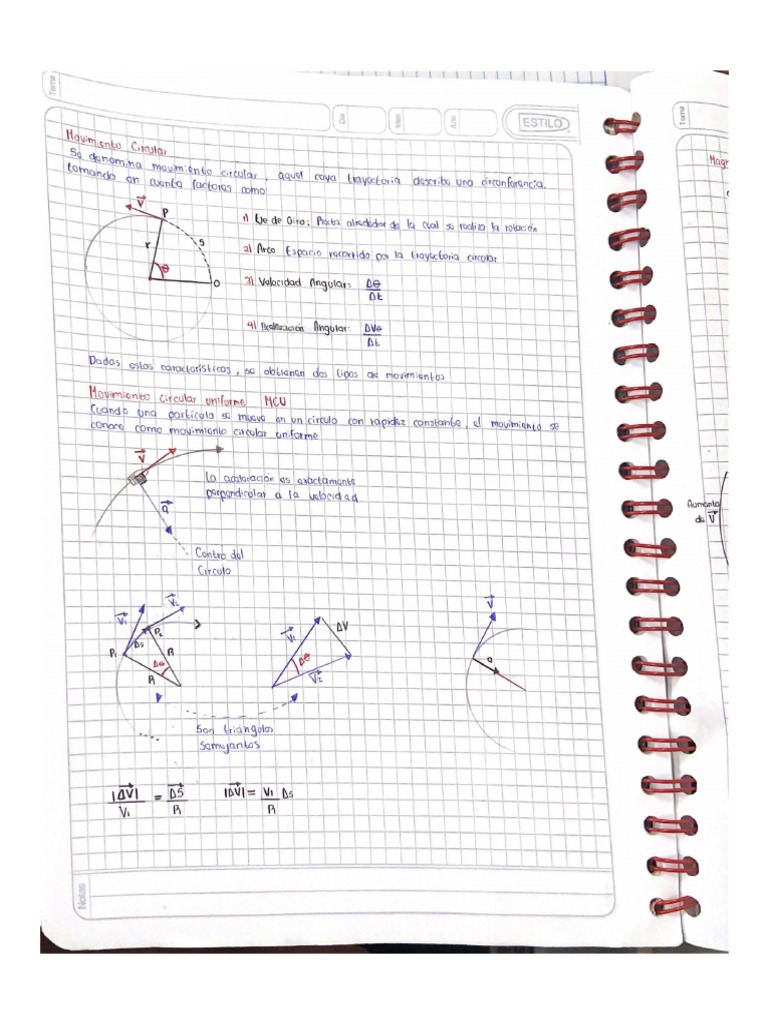 Tema
Dia
Mes
Año
ESTILO
Tema
Movimiento Circular
Se denomina movimiento circular, aquel cuya trayectoria describe una circunferencia.
tomando en cuenta factores como:
V
P
r
s
θ
O
1) Eje de Giro: Punto alrededor de la cual se realiza la rotación
2) Arco Espacio recorrido por la trayectoria circular
3) Velocidad Angular: Δθ/Δt
4) Aceleración Angular: ΔVθ/Δt
Dadas estas características, se obtienen dos tipos de movimientos
Movimiento circular uniforme MCU
Cuando una partícula se mueve en un circulo con rapidez constante, el movimiento se
conoce como movimiento circular uniforme
V
a
La aceleración es exactamente
perpendicular a la velocidad
Centro del
Circulo
V₁
V₂
P₁
P₂
Δs
R
R
Δθ
V₁
ΔV
Δθ
V₂
V
a
Son triángulos
semejantes
|ΔV|/V₁ = ΔS/R
|ΔV| = V₁/R Δs
Notas
Magn
Aumento
de V